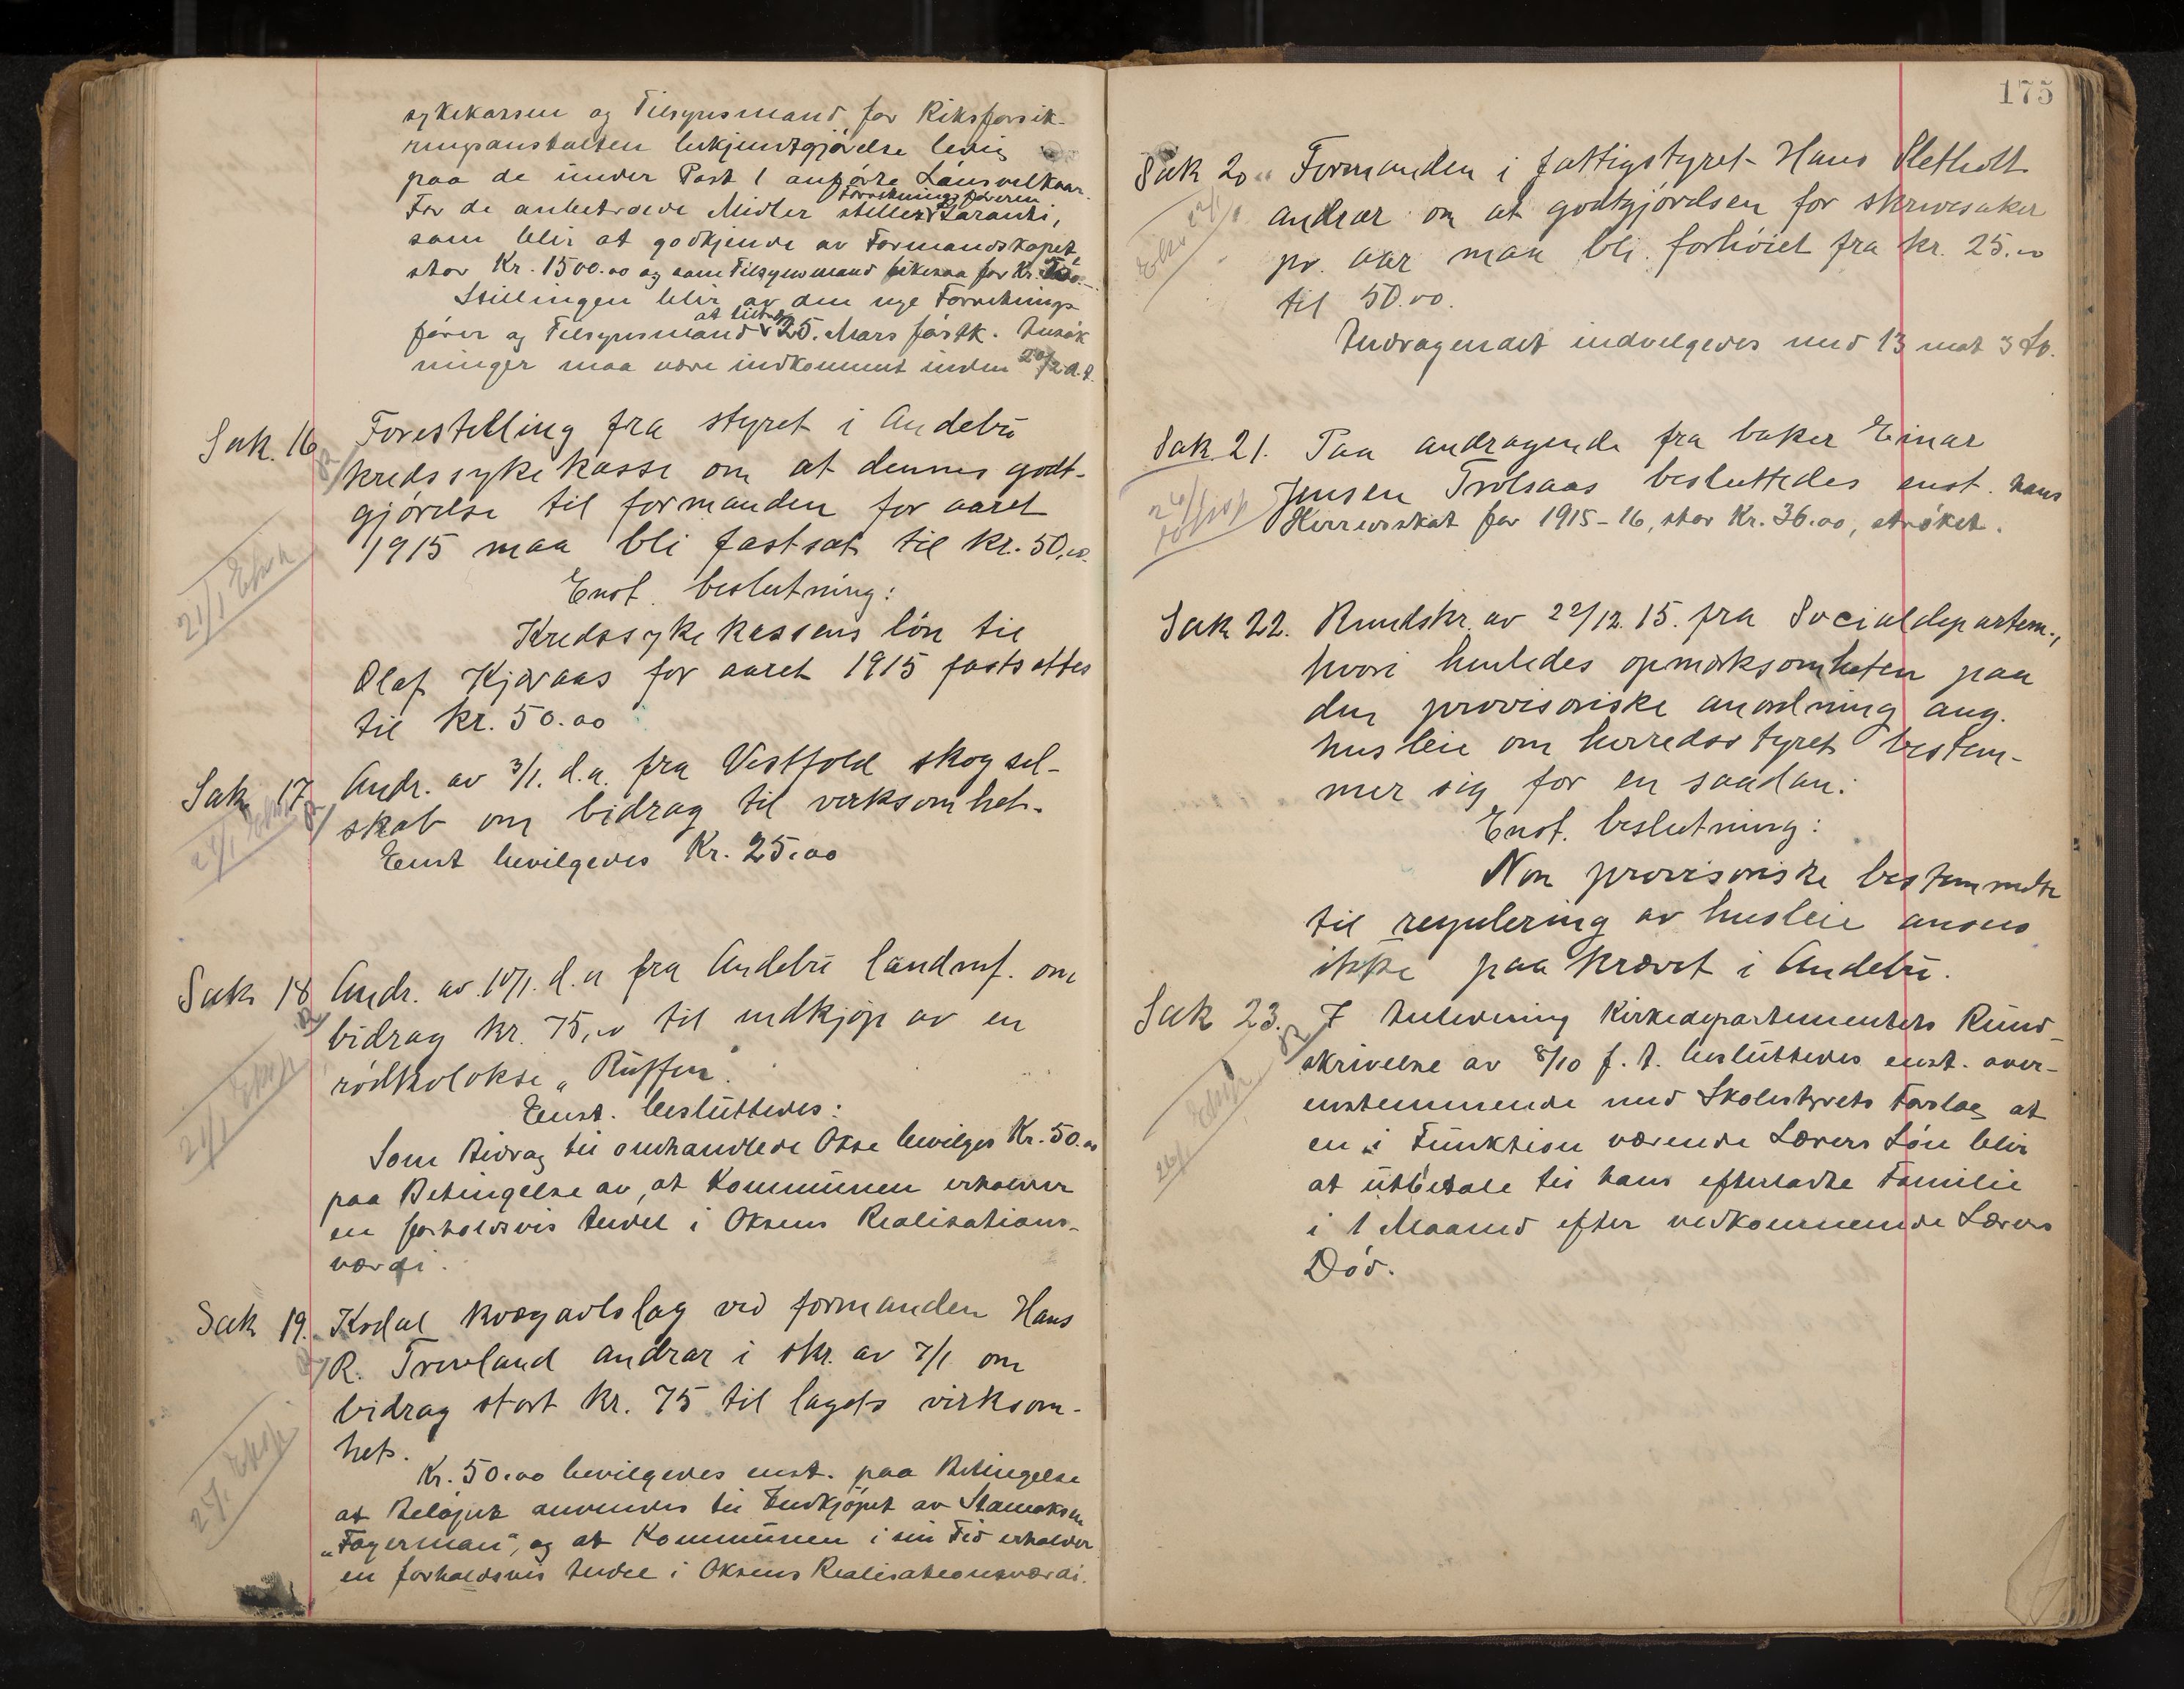 sykekassen og Tilsynsmand for Riksforsik-
ringsanstalten bekjendtgjörelse ledig
paa de under Post 1 anförte Lönsvilkaar.
For de anbetroede Midler stiller Forretningsföreren Garanti,
som blir at godkjende av Formandskapet,
stor Kr. 1500.00 og som Tilsynsmand likesaa for Kr.
Stillingen blir av den nye Forretnings-
förer og Tilsynsmand at tiltræ 25. Mars förstk. Ansök
ninger maa være indkommet inden 20/2 d. A.
Sak. 16 Forestilling fra styret i Andebu
kredssykekasse om at dennes godt-
gjörelse til formanden for aaret
1915 maa bli fastsat til kr. 50,00.
Enst. beslutning:
Kredssykekassens lön til
Olaf Kjæraas for aaret 1915 fastsettes
til kr. 50.00
21/1 Eksp.
Sak 17 Andr. av 3/1. d.a. fra Vestfold skogsel-
skab om bidrag til virksomhet.
Enst bevilgedes Kr. 25.00
Sak 18 Andr. av 10/1. d.a fra Andebu landmf. om
bidrag kr. 75,00 til indkjöp av en
rödkolokse „Ruffen".
Enst. besluttedes:
Som Bidrag til omhandlede Okse bevilges Kr. 50.00
paa Betingelse av, at Kommunen erholder
en forholdsvis Andel i Oksens Realisations-
værdi.
Sak 19. Kodal kvægavlslag ved formanden Hans
R. Trevland andrar i skr. av 7/1 om
bidrag stort kr. 75 til lagets virksom-
het.
Kr. 50.00 bevilgedes enst. paa Betingelse
at Belöpet anvendes til Indkjöpet av Stamoksen
„Fagerman", og at Kommunen i sin Tid erholder
en forholdsvis Andel i Oksens Realisationsværdi.
175
Sak 20. Formanden i fattigstyret Hans Sletholt
andrar om at godtgjörelsen for skrivesaker
pr. aar maa bli forhöiet fra kr. 25.00
til 50.00.
Andragendet indvilgedes med 13 mot 3 St.
Sak 21. Paa andragende fra baker Einar
Jensen Trolsaas besluttedes enst. hans
Herredsskat for 1915-16, stor Kr. 36.00, ströket.
Sak 22. Rundskr. av 22/12. 15. fra Socialdepartem.,
hvori henledes opmerksomheten paa
den provisoriske anordning ang.
husleie om herredsstyret bestem-
mer sig for en saadan:
Enst. beslutning:
Non provisoriske bestemmelse
til regulering av husleie ansees
ikke paakrævet i Andebu.
Sak 23. I Anledning Kirkedepartementets Rund-
skrivelse av 8/10 f. A. besluttedes enst. over-
enstemmende med Skolestyrets Forslag at
en i Funktion værende Lærers Lön blir
at utbetale til hans efterladte Familie
i 1 Maaned efter vedkommende Lærers
Död.